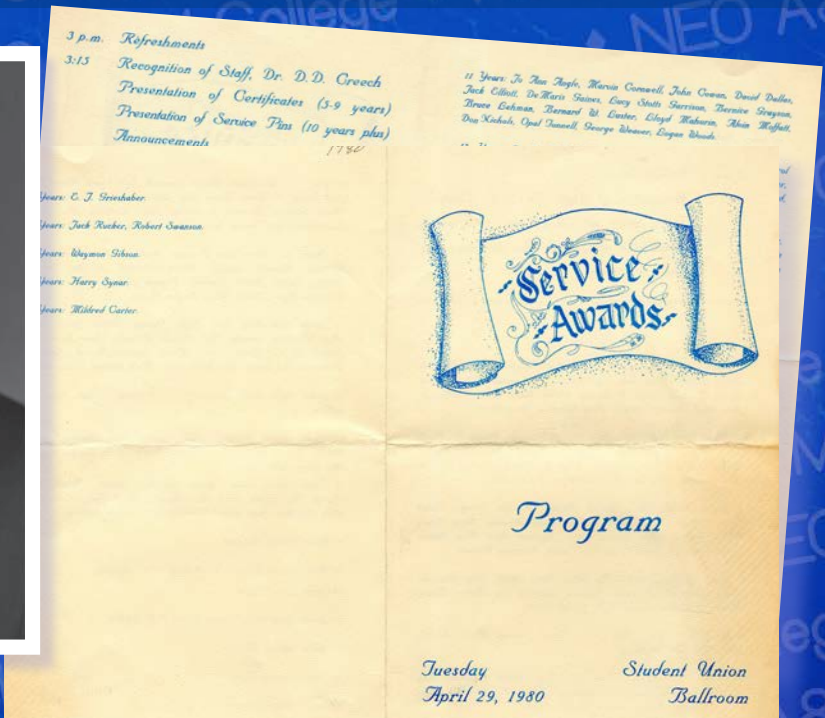 College
NEO A
3 p.m. Refreshments
3:15 Recognition of Staff, Dr. D.D. Creech
Presentation of Certificates (3-9 years)
Presentation of Service Pins (10 years plus)
Announcements
11 Years: Jo Ann Angle, Marvin Cornwell, John Cowan, David Dallas,
Jack Elliott, De Maris Gaines, Lucy Stotts Garrison, Bernice Grayson,
Bruce Lehman, Bernard W. Luster, Lloyd Maburin, Alvin Moffatt,
Don Nichols, Opal Tunnell, George Weaver, Logan Woods.
Years: E. J. Grieshaber.
Years: Jack Rucker, Robert Swanson.
Years: Waymon Gibson.
Years: Harry Synar.
Years: Mildred Carter.
Service
Awards
Program
Tuesday
April 29, 1980
Student Union
Ballroom